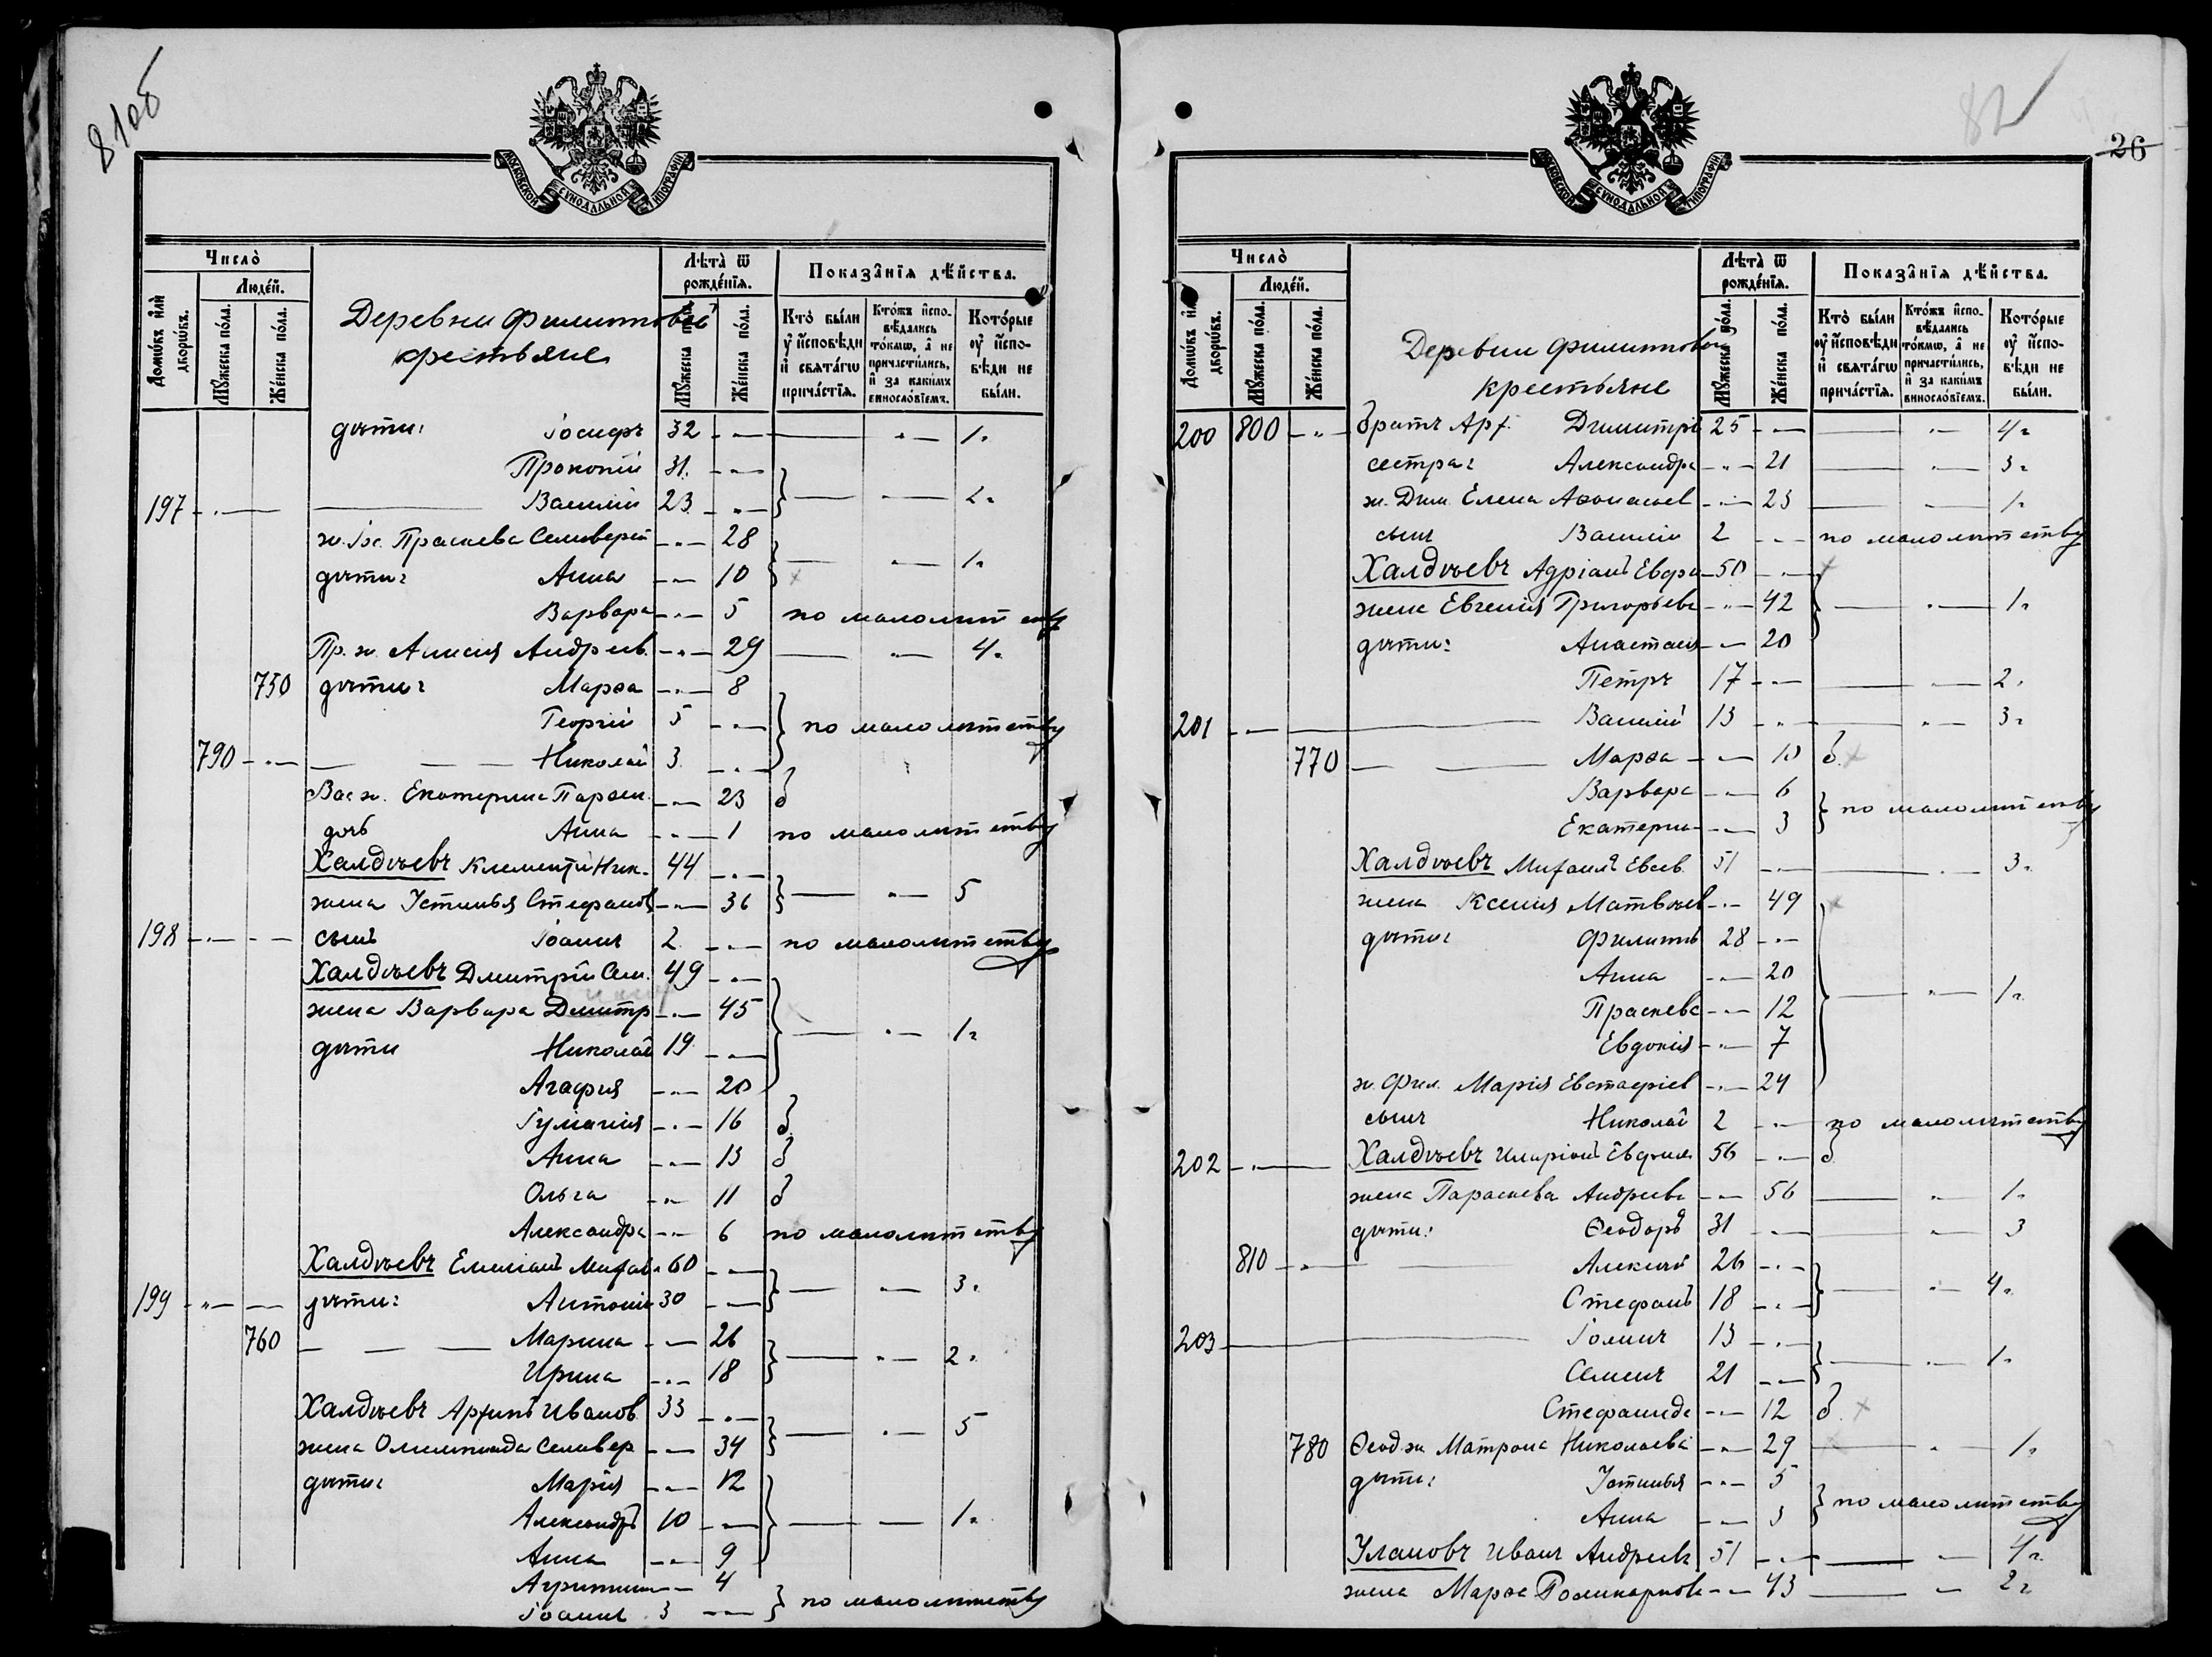 81об
МОСКОВСКОЙ СѴНОДАЛЬНОЙ ТИПОГРАФІИ
Число̀
Людéй.
Домѡ́въ и҆лѝ дворѡ́въ.
Мꙋ́жеска по́ла.
Же́нска по́ла.
Деревни Филиповой
крестьяне
Лѣ́та ѿ рожде́нїѧ.
Мꙋ́жеска по́ла.
Же́нска по́ла.
Показа̑нїѧ дѣ́йства.
Кто̀ бы́ли ᲂу҆ и҆́сповѣди и҆ свѧта́гѡ прича́стїѧ.
Кто́жъ и҆сповѣ́дались то́кмѡ, а҆ не причасти́лись, и҆ за каки́мъ винослóвїемъ.
Кото́рые ᲂу҆ и҆́сповѣди не бы́ли.
дѣти: Іосифъ 32 - „ — — „ — 1 „
Прокопій 31 - „ —
197 - „ — Василій 23 - „ — — „ — 2 „
ж. Іос. Праскева Селиверст - „ — 28
дѣти: Анна - „ — 10 — „ — 1 „
Варвара - „ — 5 по малолѣтству
Пр. ж. Анисія Андреев. - „ — 29 — „ — 4 „
750 дѣти: Марѳа - „ — 8
Георгій 5 - „ — по малолѣтству
790 - „ — Николай 3 - „ —
Вас ж. Екатерина Парѳен. - „ — 23 б
дочь Анна - „ — 1 по малолѣтству
Халдѣевъ Климентій Ник. 44 - „ —
жена Устинья Стефанов - „ — 36 — „ — 5
198 - „ — сынъ Іоаннъ 2 - „ — по малолѣтству
Халдѣевъ Дмитрій Сем. 49 - „ —
жена Варвара Дмитр - „ — 45
дѣти Николай 19 - „ — — „ — 1 „
Агафия - „ — 20
Іуліанія - „ — 16 б
Анна - „ — 13 б
Ольга - „ — 11 б
Александра - „ — 6 по малолѣтству
Халдѣевъ Емиліанъ Михаи. 60 - „ —
199 - „ — дѣти: Антоній 30 - „ — — „ — 3 „
760 Марина - „ — 26
Ирина - „ — 18 — „ — 2 „
Халдѣевъ Архипъ Иванов 33 - „ —
жена Олимпиада Селивер - „ — 34 — „ — 5
дѣти: Марія - „ — 12
Александръ 10 - „ — — „ — 1 „
Анна - „ — 9
Агрипина - „ — 4
Іоаннъ 3 - „ — по малолѣтству
82
26
МОСКОВСКОЙ СѴНОДАЛЬНОЙ ТИПОГРАФІИ
Число̀
Людéй.
Домѡ́въ и҆лѝ дворѡ́въ.
Мꙋ́жеска по́ла.
Же́нска по́ла.
Деревни Филиповой
крестьяне
Лѣ́та ѿ рожде́нїѧ.
Мꙋ́жеска по́ла.
Же́нска по́ла.
Показа̑нїѧ дѣ́йства.
Кто̀ бы́ли ᲂу҆ и҆́сповѣди и҆ свѧта́гѡ прича́стїѧ.
Кто́жъ и҆сповѣ́дались то́кмѡ, а҆ не причасти́лись, и҆ за каки́мъ винослóвїемъ.
Кото́рые ᲂу҆ и҆́сповѣди не бы́ли.
200 800 - „ — братъ Арх. Димитрі 25 - „ — — „ — 4 „
сестра: Александра - „ — 21 — „ — 3 „
ж. Дим. Елена Аѳонасьев - „ — 23 — „ — 1 „
сынъ Василій 2 - „ — по малолѣтству
Халдѣевъ Адріанъ Евфи 50 - „ —
жена Евгенія Григорьева - „ — 42 — „ — 1 „
дѣти: Анастасія - „ — 20
Петръ 17 - „ — — „ — 2 „
201 - „ — Василій 13 - „ — — „ — 3 „
770 Марѳа - „ — 10 б
Варвара - „ — 6
Екатерин - „ — 3 по малолѣтству
Халдѣевъ Михаилъ Евсев. 51 - „ — — „ — 3 „
жена Ксенія Матвѣев - „ — 49
дѣти: Филиппъ 28 - „ —
Анна - „ — 20
Праскева - „ — 12 — „ — 1 „
Евдокія - „ — 7
ж. Фил. Марія Евстафіев - „ — 24
сынъ Николай 2 - „ — по малолѣтству
202 - „ — Халдѣевъ Иларіонъ Евфим 56 - „ — б
жена Параскева Андреева - „ — 56 — „ — 1 „
дѣти: Ѳеодоръ 31 - „ — — „ — 3
810 - „ — Алексій 26 - „ —
Стефанъ 18 - „ — — „ — 4 „
203 — Іоаннъ 13 - „ —
Семенъ 21 - „ — — „ — 1 „
Стефанида - „ — 12 б
780 Ѳеод ж Матрона Николаева - „ — 29 — „ — 1 „
дѣти: Устинья - „ — 5
Анна - „ — 3 по малолѣтству
Улановъ Иванъ Андреевъ 51 - „ — — „ — 4 „
жена Марѳа Поликарпова - „ — 43 — „ — 2 „